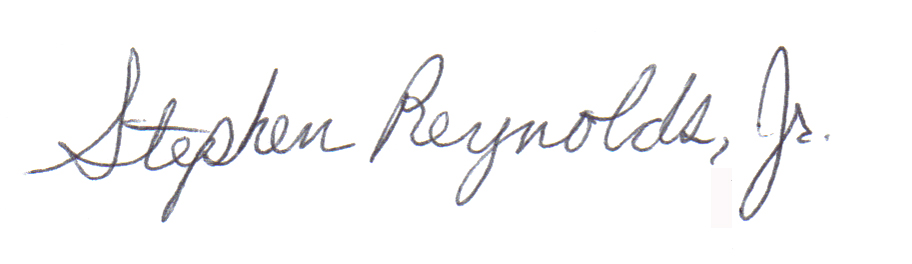 Stephen Reynolds, Jr.